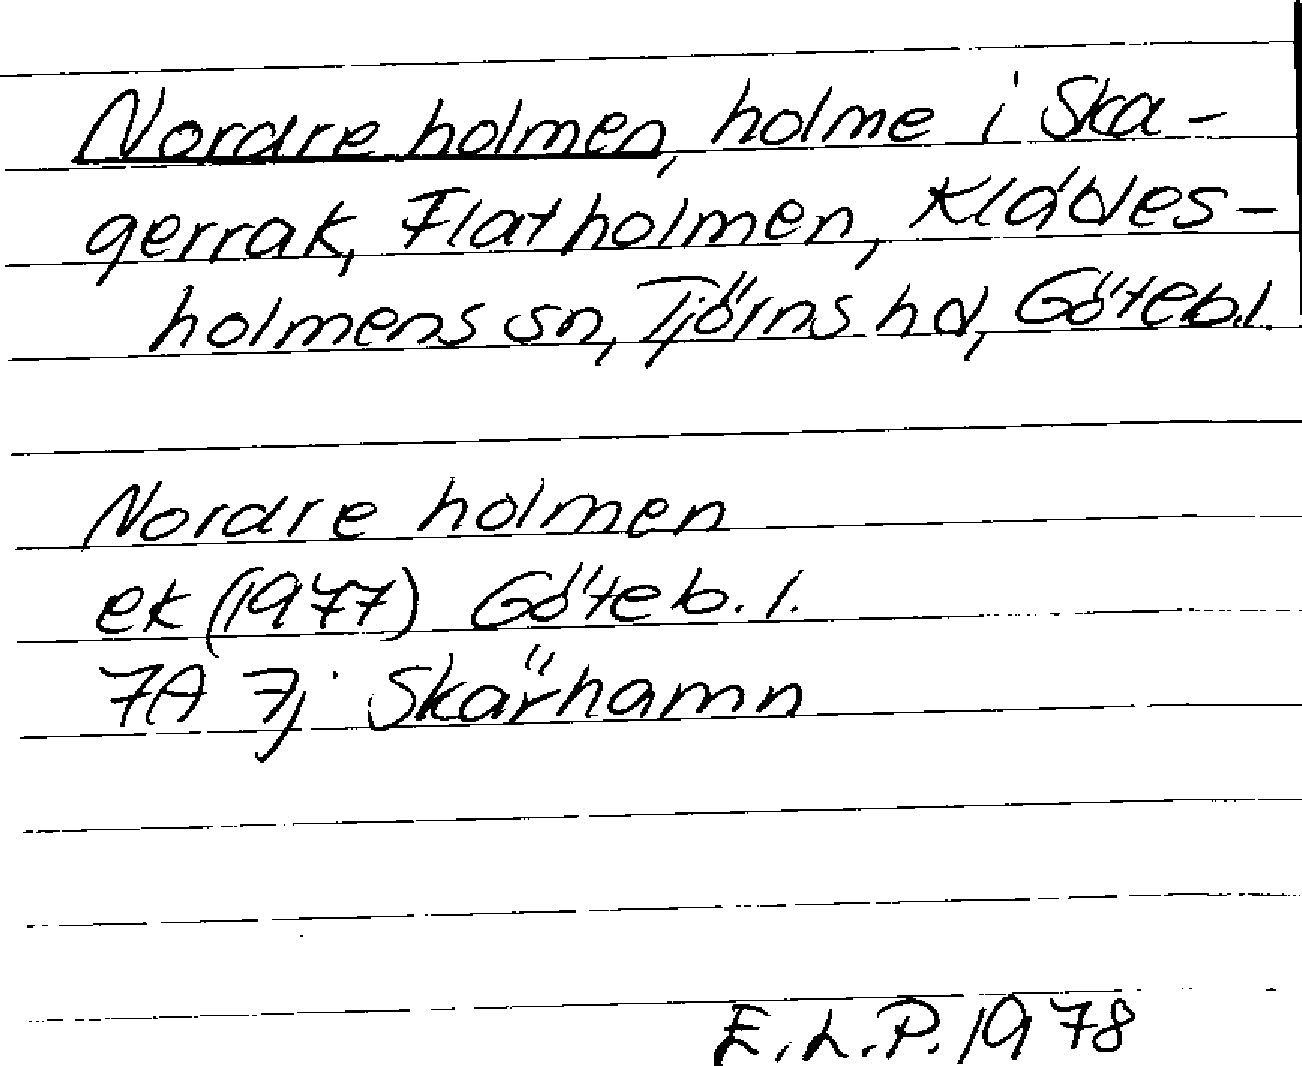 Nordre holmen, holme i Ska-
gerrak, Flatholmen, Klädes-
holmens sn, Tjörns hd, Göteb.l.
Nordre holmen
ek (1977) Göteb. l.
7A 7j Skärhamn
E.L.P. 1978